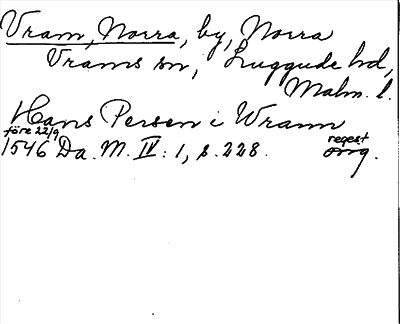 Vram, Norra, by, Norra
Vrams sn, Luggude hd,
Malm. l.
Hans Persen i Wramn
före 22/9
1546 Da. M. IV: 1, s. 228.
regest
orig.